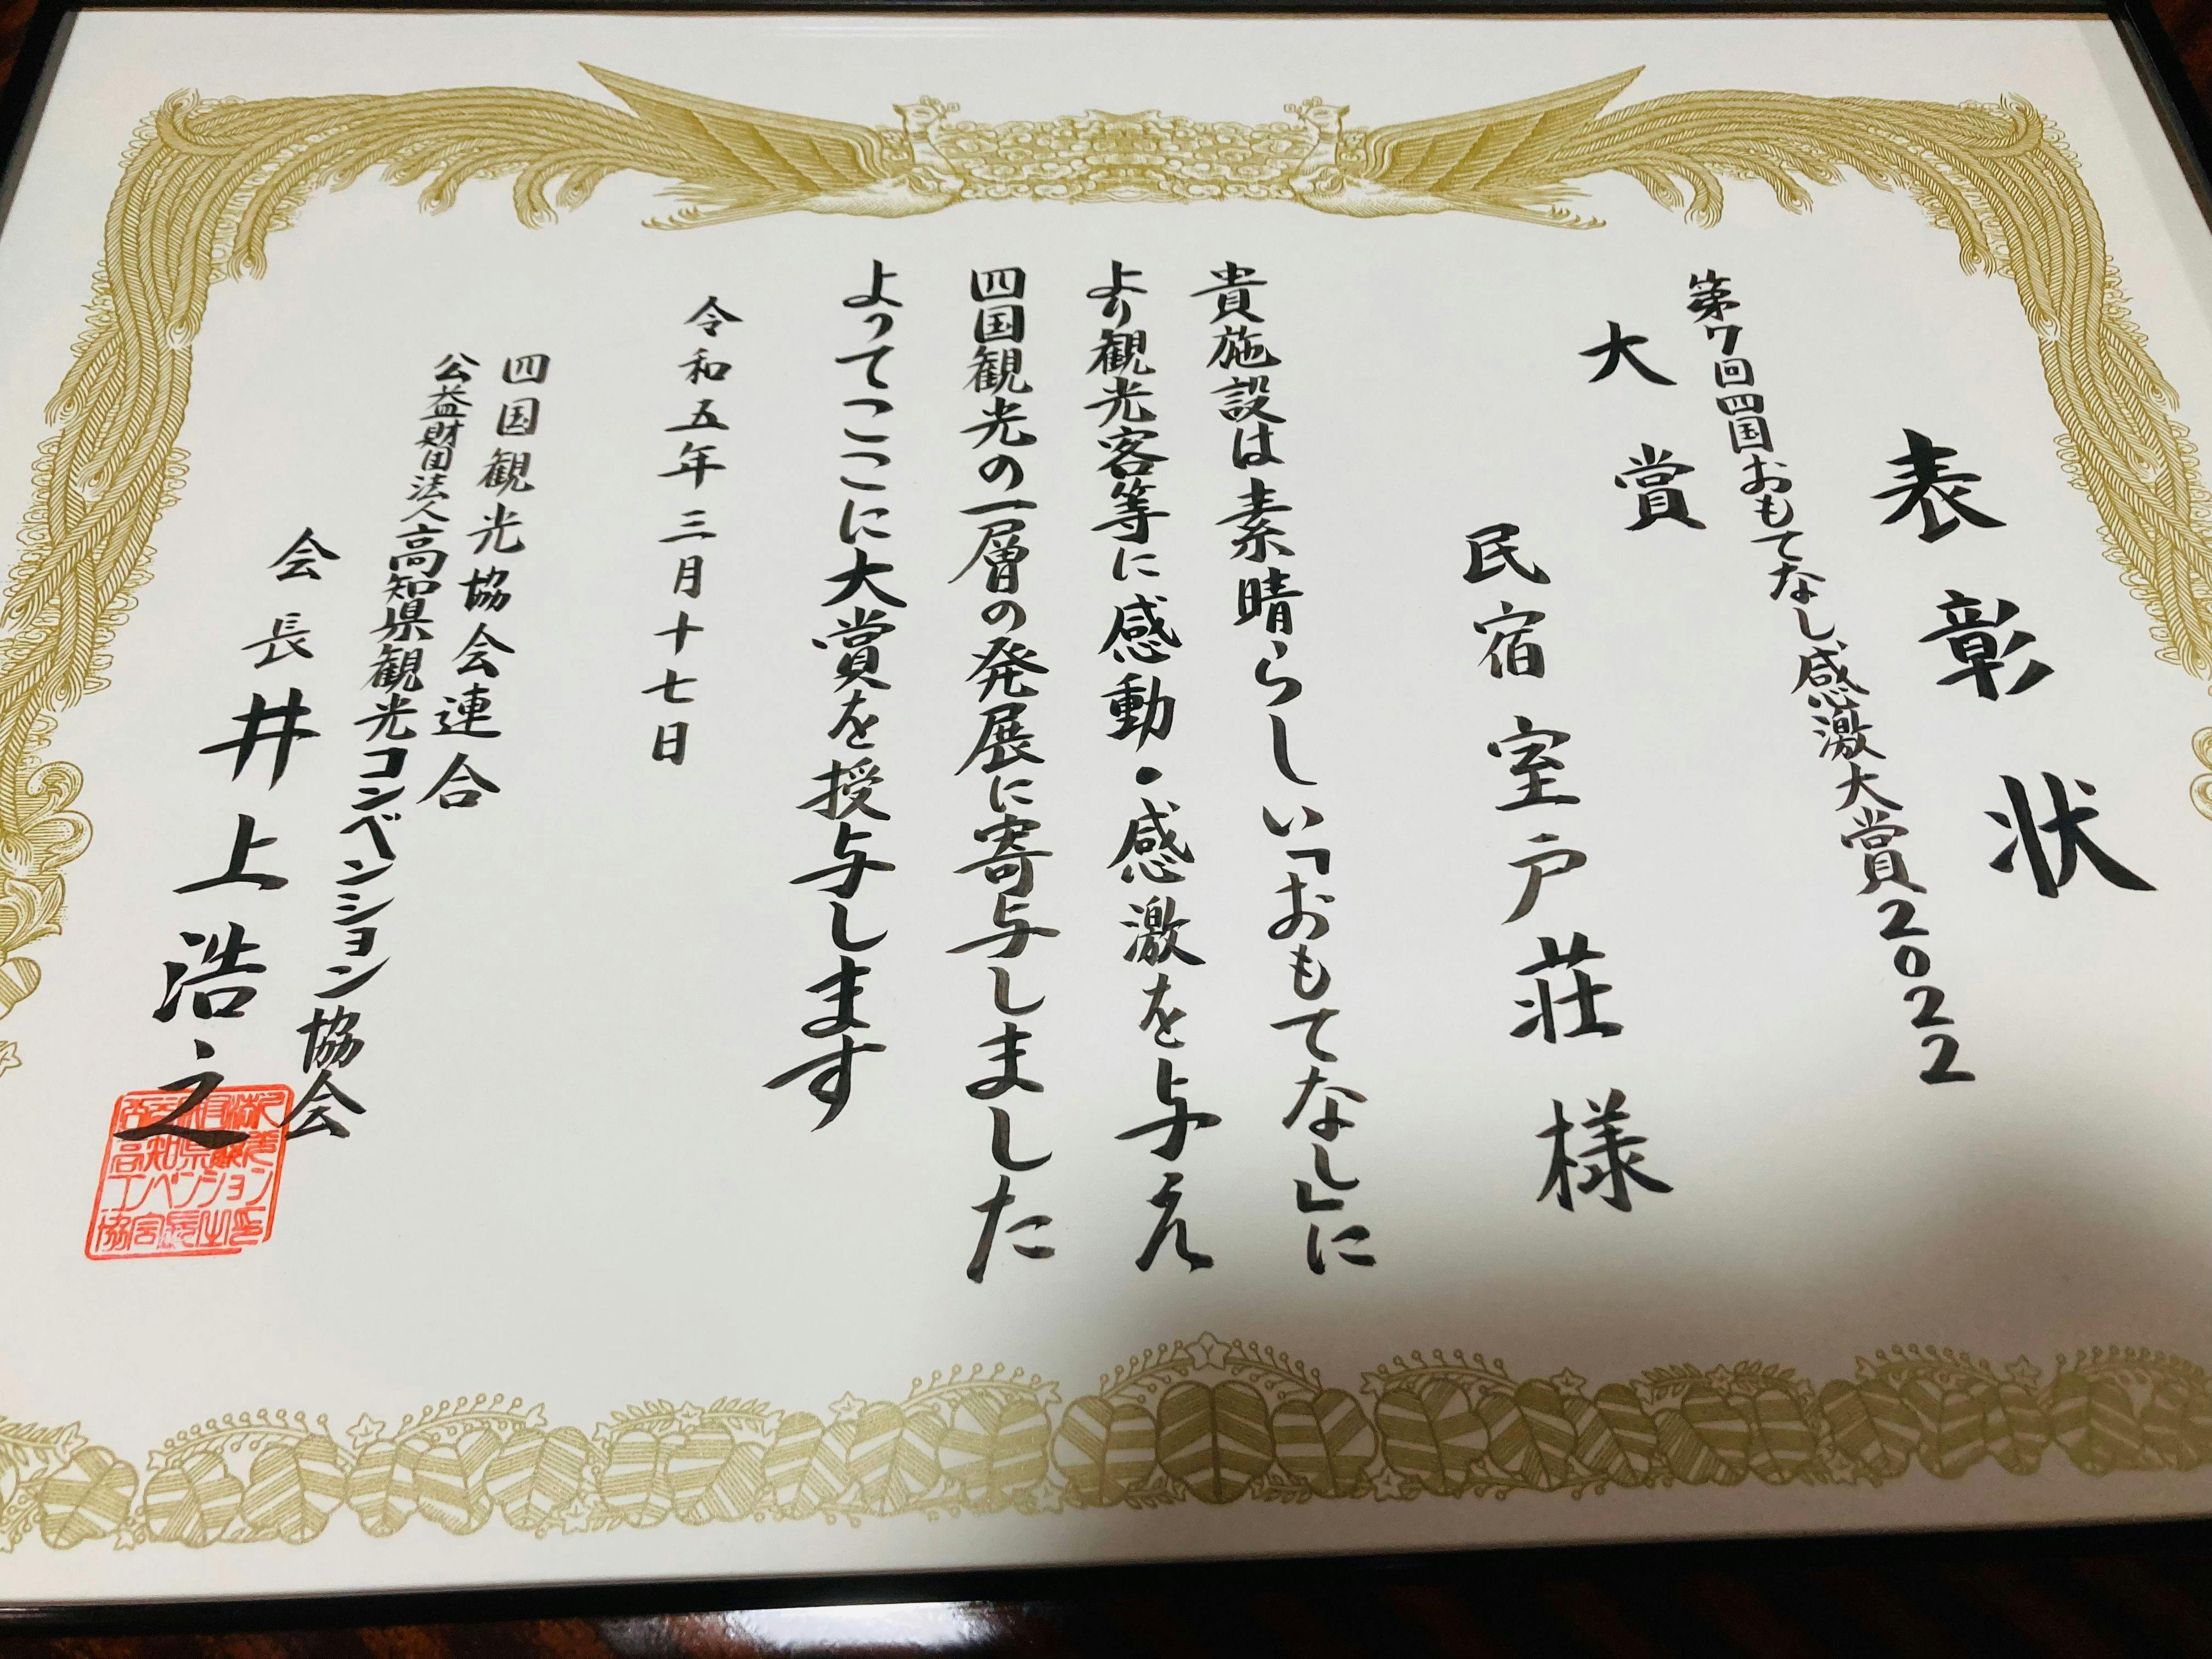 表彰状
第7回四国おもてなし感激大賞2022
大賞
民宿室戸荘様
貴施設は素晴らしい「おもてなし」に
より観光客等に感動・感激を与え
四国観光の一層の発展に寄与しました
よってここに大賞を授与します
令和五年三月十七日
四国観光協会連合
公益財団法人高知県観光コンベンション協会
会長井上浩之